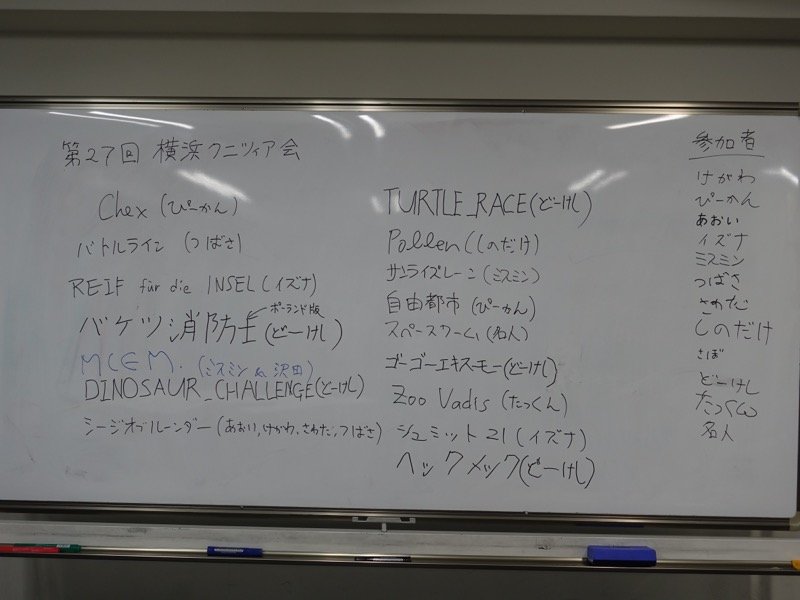 第27回 横浜クニツィア会
Chex (ぴーかん)
バトルライン (つばさ)
REIF für die INSEL (イズナ)
ポーランド版
バケツ消防士 (どーけし)
MCEM. (ミスミン & 沢田)
DINOSAUR_CHALLENGE (どーけし)
シージオブルーンダー (あおい, けがわ, さわだ, つばさ)
TURTLE_RACE (どーけし)
Pollen (しのだけ)
サンライズレーン (ミスミン)
自由都市 (ぴーかん)
スペースワーム (名人)
ゴーゴーエキスモー (どーけし)
Zoo Vadis (たっくん)
シュミット21 (イズナ)
ヘックメック (どーけし)
参加者
けがわ
ぴーかん
あおい
イズナ
ミスミン
つばさ
さわだ
しのだけ
さば
どーけし
たっくん
名人